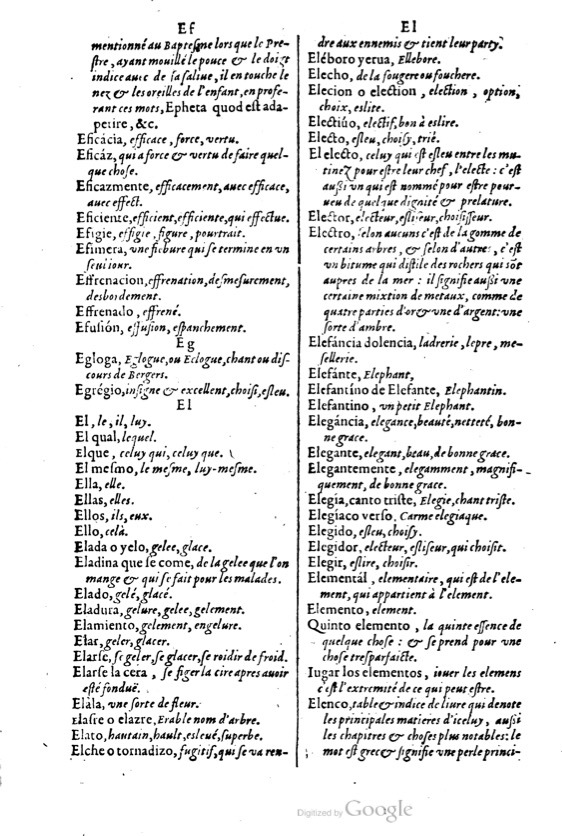 Ef
mentionné au Baptesme lors que le Pre-
stre, ayant mouillé le pouce & le doigt
indice auec de sa saliue, il en touche le
nez & les oreilles de l'enfant, en profe-
rant ces mots, Epheta quod est ada-
petire, &c.
Eficácia, efficace, force, vertu.
Eficáz, qui a force & vertu de faire quel-
que chose.
Eficazmente, efficacement, auec efficace,
auec effect.
Eficiente, efficient, efficiente, qui effectue.
Efigie, effigie, figure, pourtrait.
Efimera, vne fiebure qui se termine en vn
seul iour.
Effrenacion, effrenation, desmesurement,
desbordement.
Effrenado, effrené.
Efusión, effusion, espanchement.
Eg
Egloga, Eglogue, ou Eclogue, chant ou dis-
cours de Bergers.
Egrégio, insigne & excellent, choisi, esleu.
El
El, le, il, luy.
El qual, lequel.
Elque, celuy qui, celuy que.
El mesmo, le mesme, luy-mesme.
Ella, elle.
Ellas, elles.
Ellos, ils, eux.
Ello, celà.
Elada o yelo, gelee, glace.
Eladina que se come, de la gelee que l'on
mange & qui se fait pour les malades.
Elado, gelé, glacé.
Eladura, gelure, gelee, gelement.
Elamiento, gelement, engelure.
Elar, geler, glacer.
Elarse, se geler, se glacer, se roidir de froid.
Elarse la cera, se figer la cire apres auoir
esté fonduë.
Elàla, vne sorte de fleur.
Elasre o elazre, Erable nom d'arbre.
Elato, hautain, hault, esleué, superbe.
Elche o tornadizo, fugitif, qui se va ren-
El
dre aux ennemis & tient leur party.
Eléboro yerua, Ellebore.
Elecho, de la fougere ou fouchere.
Elecion o election, election, option,
choix, eslite.
Electiúo, electif, bon à eslire.
Electo, esleu, choisy, trié.
El electo, celuy qui est esleu entre les mu-
tinez pour estre leur chef, l'electe : c'est
aussi vn qui est nommé pour estre pour-
ueu de quelque dignité & prelature.
Elector, electeur, esliseur, choisisseur.
Electro, selon aucuns c'est de la gomme de
certains arbres, & selon d'autres, c'est
vn bitume qui distile des rochers qui sōt
aupres de la mer : il signifie aussi vne
certaine mixtion de metaux, comme de
quatre parties d'or & vne d'argent: vne
sorte d'ambre.
Elefáncia dolencia, ladrerie, lepre, me-
sellerie.
Elefánte, Elephant,
Elefantíno de Elefante, Elephantin.
Elefantino, vn petit Elephant.
Elegáncia, elegance, beauté, netteté, bon-
ne grace.
Elegante, elegant, beau, de bonne grace.
Elegantemente, elegamment, magnifi-
quement, de bonne grace.
Elegia, canto triste, Elegie, chant triste.
Elegíaco verso, Carme elegiaque.
Elegido, esleu, choisy.
Elegidor, electeur, esliseur, qui choisit.
Elegir, eslire, choisir.
Elementál, elementaire, qui est de l'ele-
ment, qui appartient à l'element.
Elemento, element.
Quinto elemento, la quinte essence de
quelque chose : & se prend pour vne
chose tresparfaicte.
Iugar los elementos, iouer les elemens
c'est l'extremité de ce qui peut estre.
Elenco, table & indice de liure qui denote
les principales matieres d'iceluy, aussi
les chapitres & choses plus notables: le
mot est grec & signifie vne perle princi-
Digitized by Google